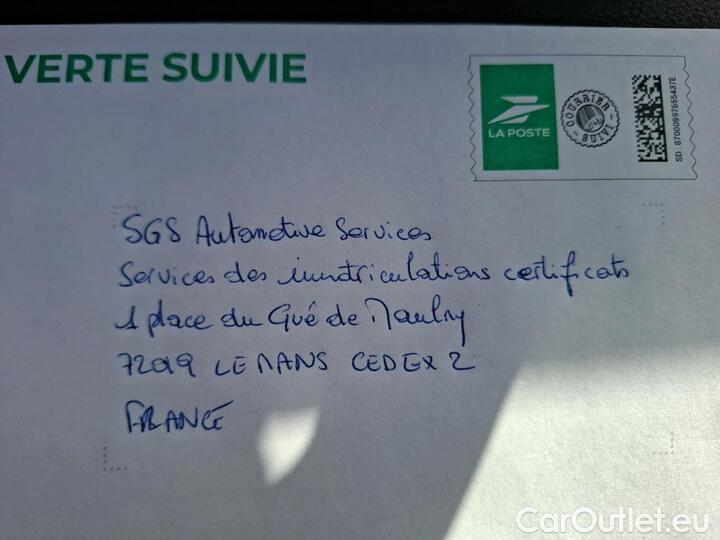 VERTE SUIVIE
LA POSTE
COURRIER SUIVI
SD : 87000997655437E
SGS Automotive Services
Services des immatriculations certificats
1 place du Gué de Maulny
72019 LE MANS CEDEX 2
FRANCE
CarOutlet.eu